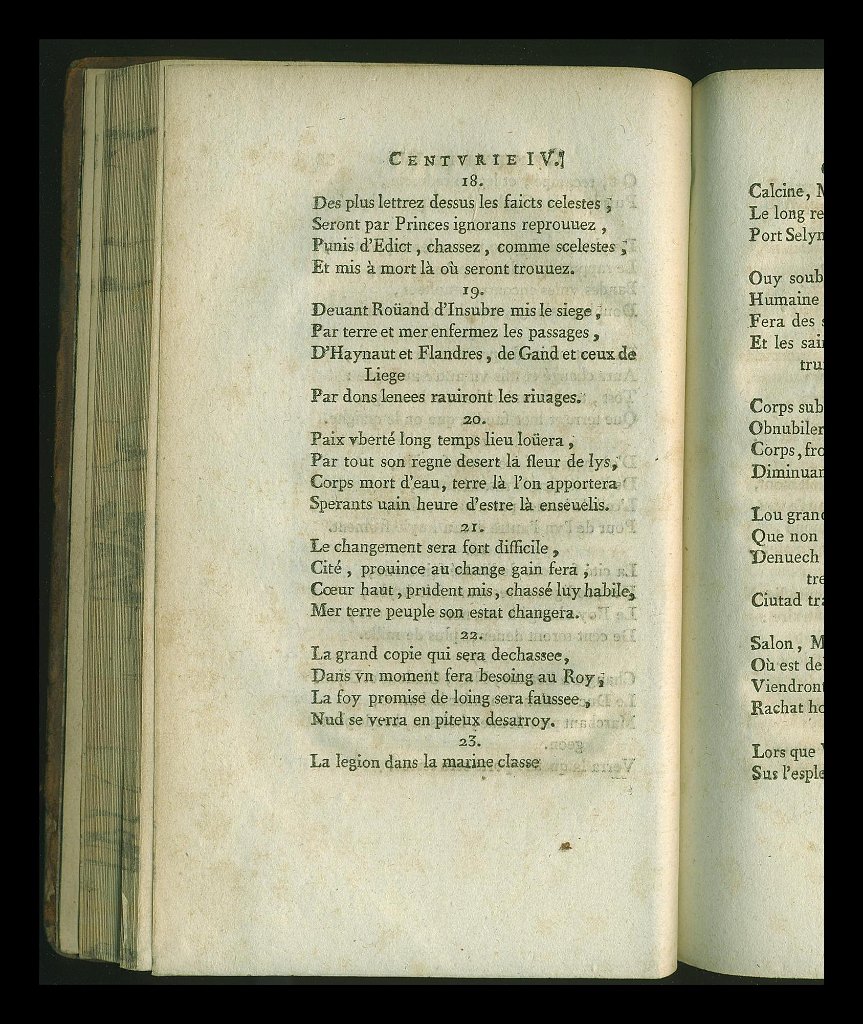 CENTVRIE IV.
18.
Des plus lettrez dessus les faicts celestes ,
Seront par Princes ignorans reprouuez ,
Punis d'Edict , chassez , comme scelestes ,
Et mis à mort là où seront trouuez.
19.
Deuant Roüand d'Insubre mis le siege ,
Par terre et mer enfermez les passages ,
D'Haynaut et Flandres , de Gand et ceux de
Liege
Par dons lenees rauiront les riuages.
20.
Paix vberté long temps lieu loüera ,
Par tout son regne desert la fleur de lys,
Corps mort d'eau, terre là l'on apportera
Sperants uain heure d'estre là enseuelis.
21.
Le changement sera fort difficile ,
Cité , prouince au change gain fera ,
Cœur haut, prudent mis, chassé luy habile,
Mer terre peuple son estat changera.
22.
La grand copie qui sera dechassee,
Dans vn moment fera besoing au Roy,
La foy promise de loing sera faussee ,
Nud se verra en piteux desarroy.
23.
La legion dans la marine classe
Calcine,
Le long
Port Selyn
Ouy
Humaine
Fera des
Et les
Corps
Obnubiler
Corps,
Diminuan
Lou grand
Que non
Denuech
Ciutad
Salon,
Où est
Viendront
Rachat
Lors que
Sus